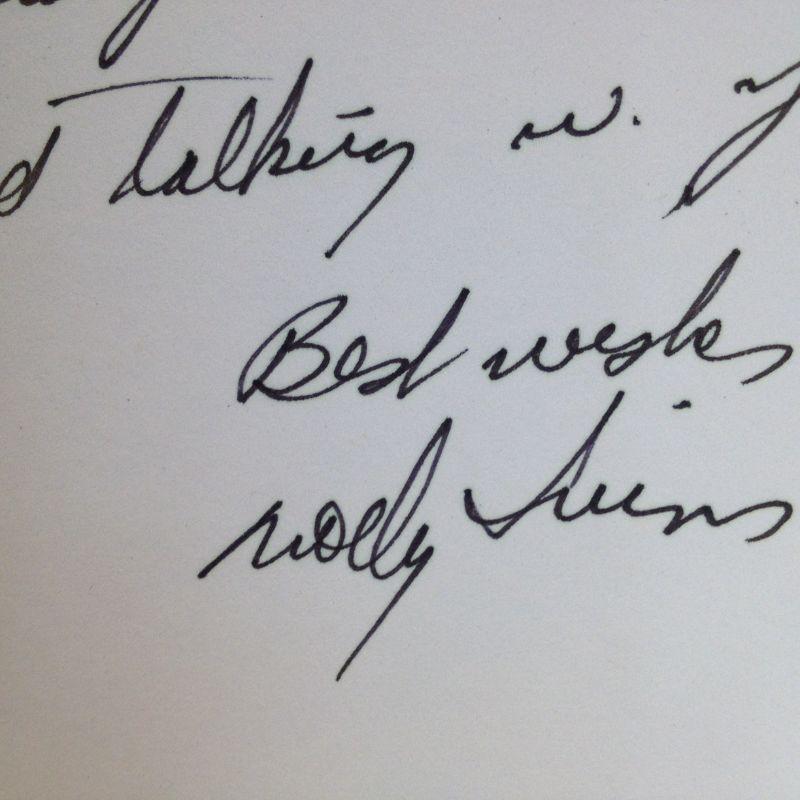 talking w.
Best wishes
Molly Ivins